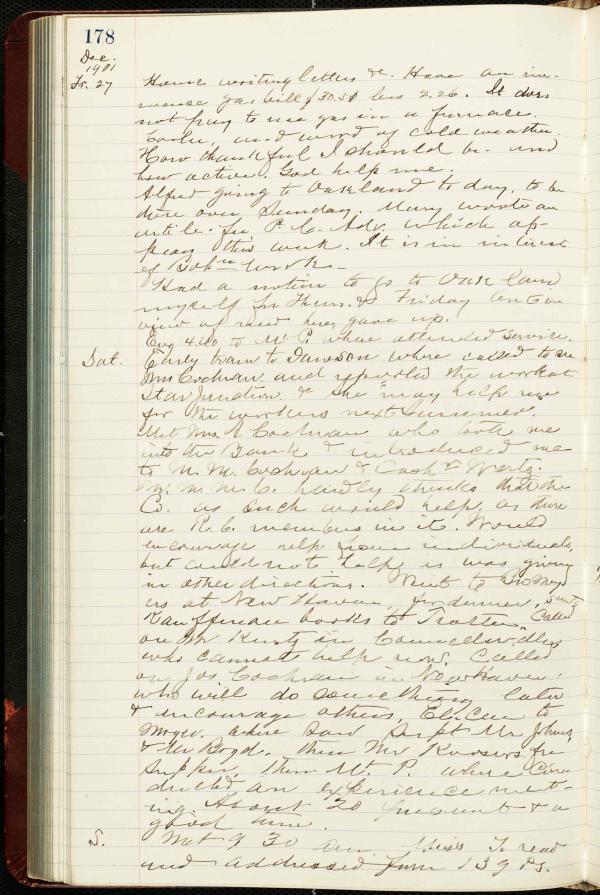 178
Dec.
1901
Fr. 27
Home writing letters &c. Have an im-
mense gas bill $30.50 less 2.26. It does
not pay to use gas in a furnace.
Cooler, and word of cold weather.
How thankful I should be. and
how active. God help me.
Alfred going to Oakland to day, to be
there over Sunday. Mary wrote an
article for P. C. Adv. which ap-
pears this week. It is in interest
of Boh'n work.
Had a notion to go to Oakland
myself for Thurs. & Friday but in
view of need here, gave up.
Evg 4.40 to Mt. P. where attended service.
Sat.
Early train to Dawson where called to see
Mrs Cochran and reported the work at
Star Junction &c she "may help us"
for the workers next summer.
Met Mrs. Cochran who took me
into the Bank & introduced me
to M. M. Cochran & Cash'r Wertz.
M. M. C. hardly thinks that the
Co. as such would help, as there
are R. C. members in it. Would
encourage help from individuals,
but could not help, is was giving
in other directions. Went to Bro Moy
ers at New Haven, for dinner, sent
Kauffman books to Called
on Mr Kurtz in Connellsville,
who cannot help now. Called
on Jos. Cochran in New Haven,
who will do something later
& encourage others, El. Car to
Moyer, where saw Supt Mr Johns,
& Mr Boyd. then Mr for
supper, then Mt. P. where con-
ducted an experience meet-
ing. About 20 present & a
good time.
S.
Met 9 30 am. Miss T. read
and addressed from 139 Ps.